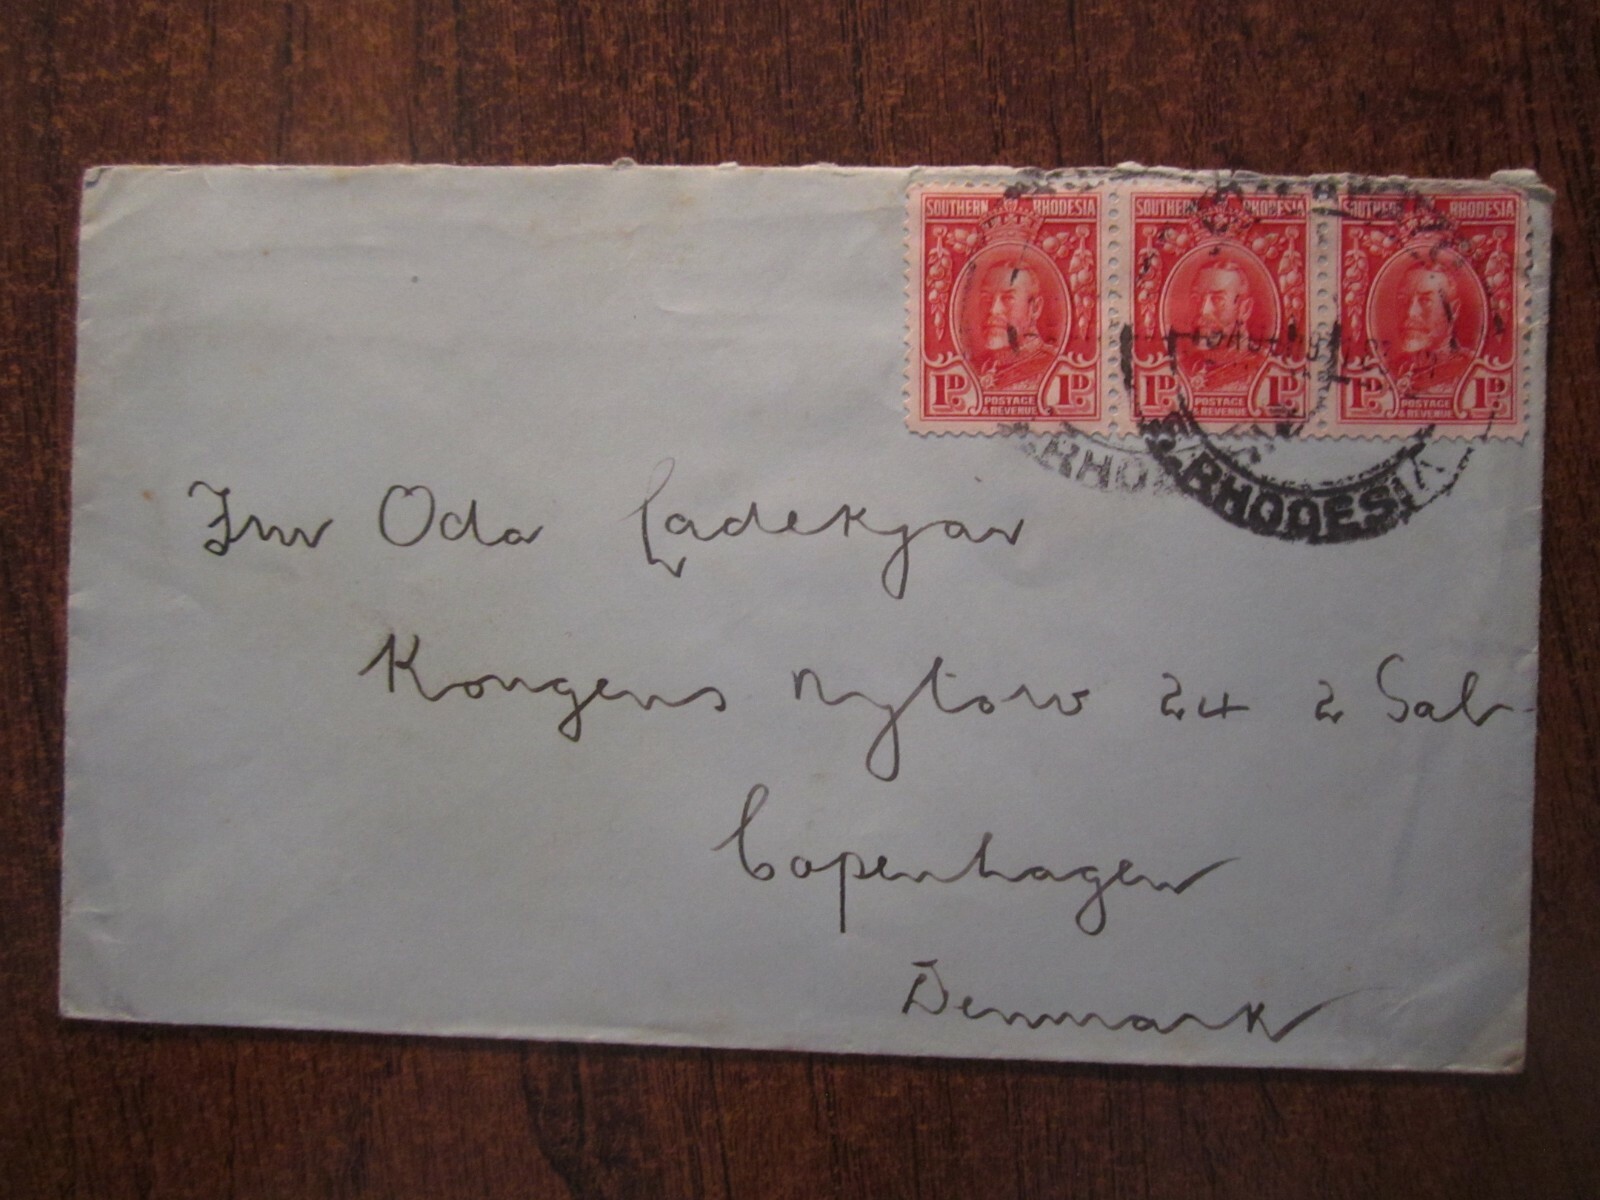 SOUTHERN RHODESIA SOUTHERN RHODESIA SOUTHERN RHODESIA
1D. POSTAGE & REVENUE 1D. 1D. POSTAGE & REVENUE 1D. 1D. POSTAGE & REVENUE 1D.
S.RHODESIA
Oda Ladekjar
Kongens Nytorv 24 2 Sal
Copenhagen
Denmark